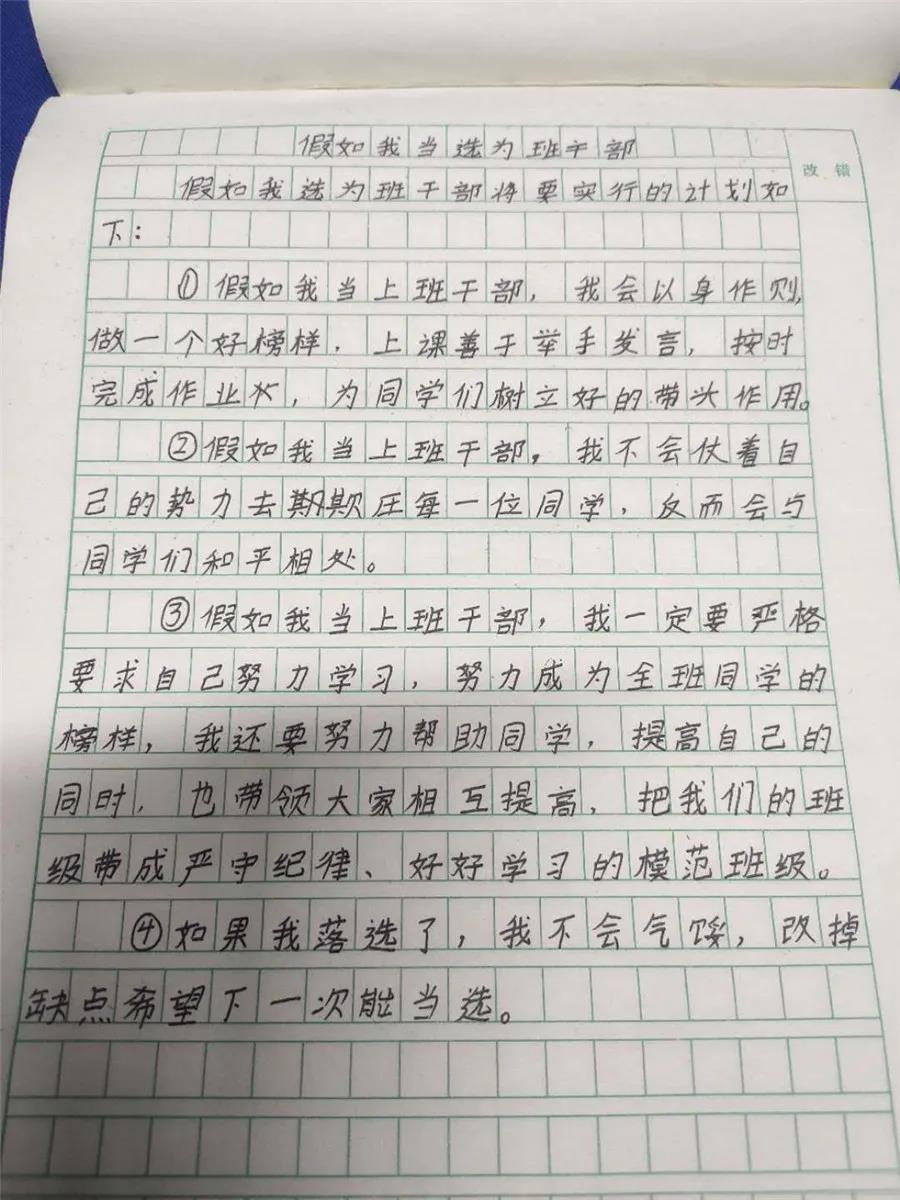 假如我当选为班干部
改错
假如我选为班干部将要实行的计划如
下：
①假如我当上班干部，我会以身作则，
做一个好榜样，上课善于举手发言，按时
完成作业，为同学们树立好的带头作用。
②假如我当上班干部，我不会仗着自
己的势力去欺压每一位同学，反而会与
同学们和平相处。
③假如我当上班干部，我一定要严格
要求自己努力学习，努力成为全班同学的
榜样，我还要努力帮助同学，提高自己的
同时，也带领大家相互提高，把我们的班
级带成严守纪律、好好学习的模范班级。
④如果我落选了，我不会气馁，改掉
缺点希望下一次能当选。